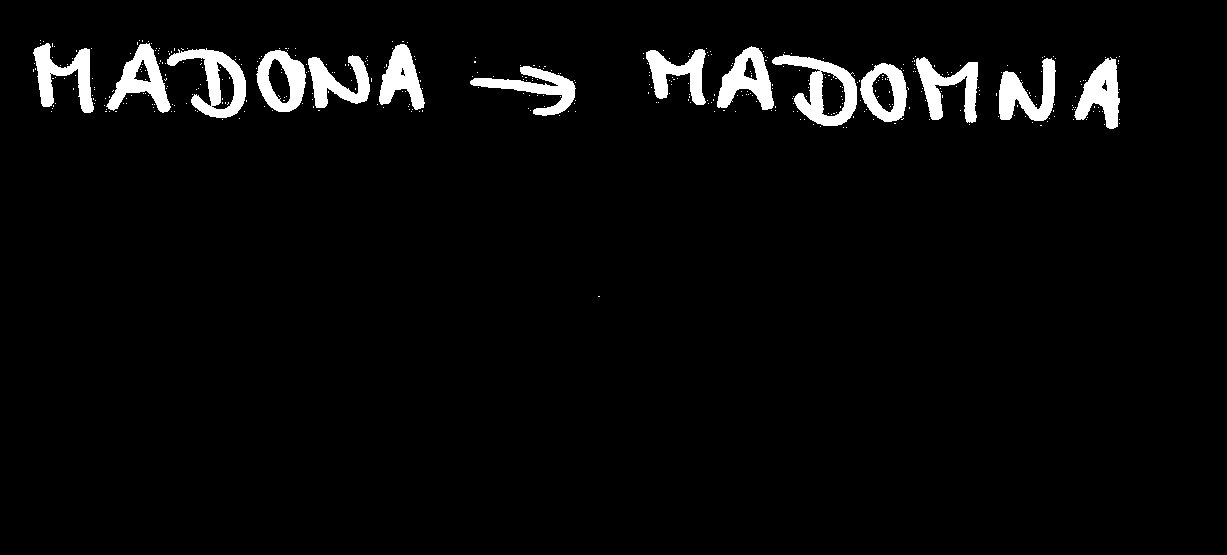 MADONA → MADOMNA